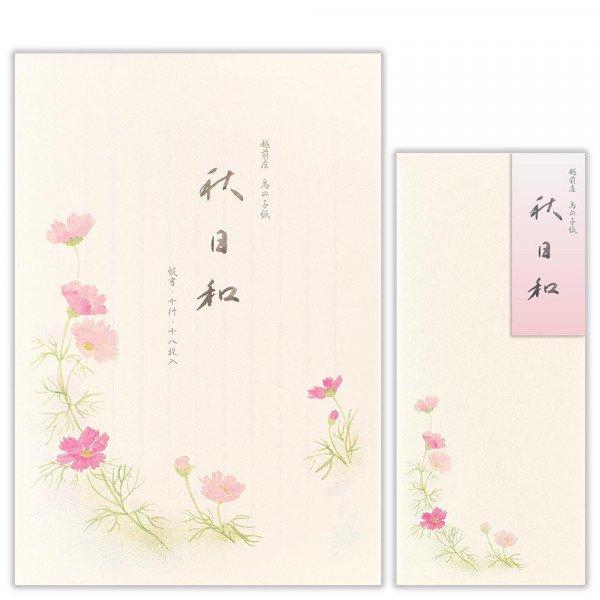 越前産 鳥の子紙
秋日和
縦書・十行・十八枚入
越前産 鳥の子紙
秋日和